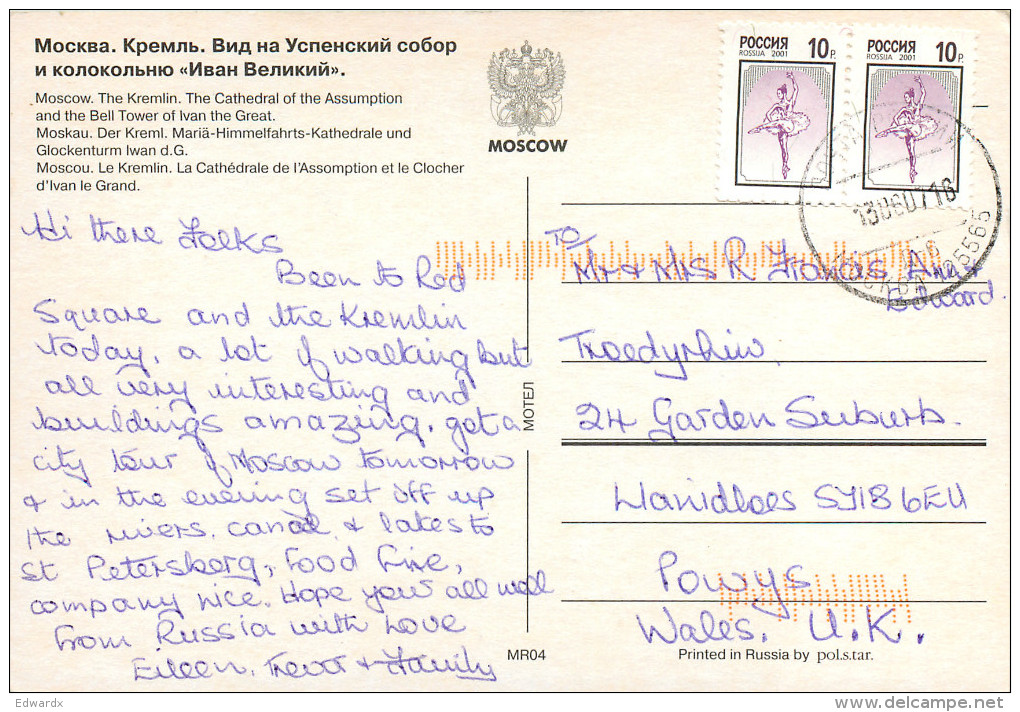 Москва. Кремль. Вид на Успенский собор
и колокольню «Иван Великий».
Moscow. The Kremlin. The Cathedral of the Assumption
and the Bell Tower of Ivan the Great.
Moskau. Der Kreml. Mariä-Himmelfahrts-Kathedrale und
Glockenturm Iwan d.G.
Moscou. Le Kremlin. La Cathédrale de l'Assomption et le Clocher
d'Ivan le Grand.
MOSCOW
РОССИЯ 10 Р.
ROSSIJA 2001
РОССИЯ 10 Р.
ROSSIJA 2001
130607 16
МОСКВА 125565
Hi there Folks
Been to Red
Square and the Kremlin
today, a lot of walking but
all very interesting and
buildings amazing, got a
city tour of Moscow tomorrow
& in the evening set off up
the rivers, canal & lakes to
St Petersborg, Food fine,
company nice. Hope your all well
From Russia with Love
Eileen, Trevor & Family
МОТЕЛ
TO/
Mr & Mrs R Francis Ann &
Edward
Troedyrhiw
24 Garden Suburb.
Llanidloes SY18 6EU
Powys
Wales. U.K.
MR04
Printed in Russia by pol.s.tar.
Edwardx
www.delcampe.net